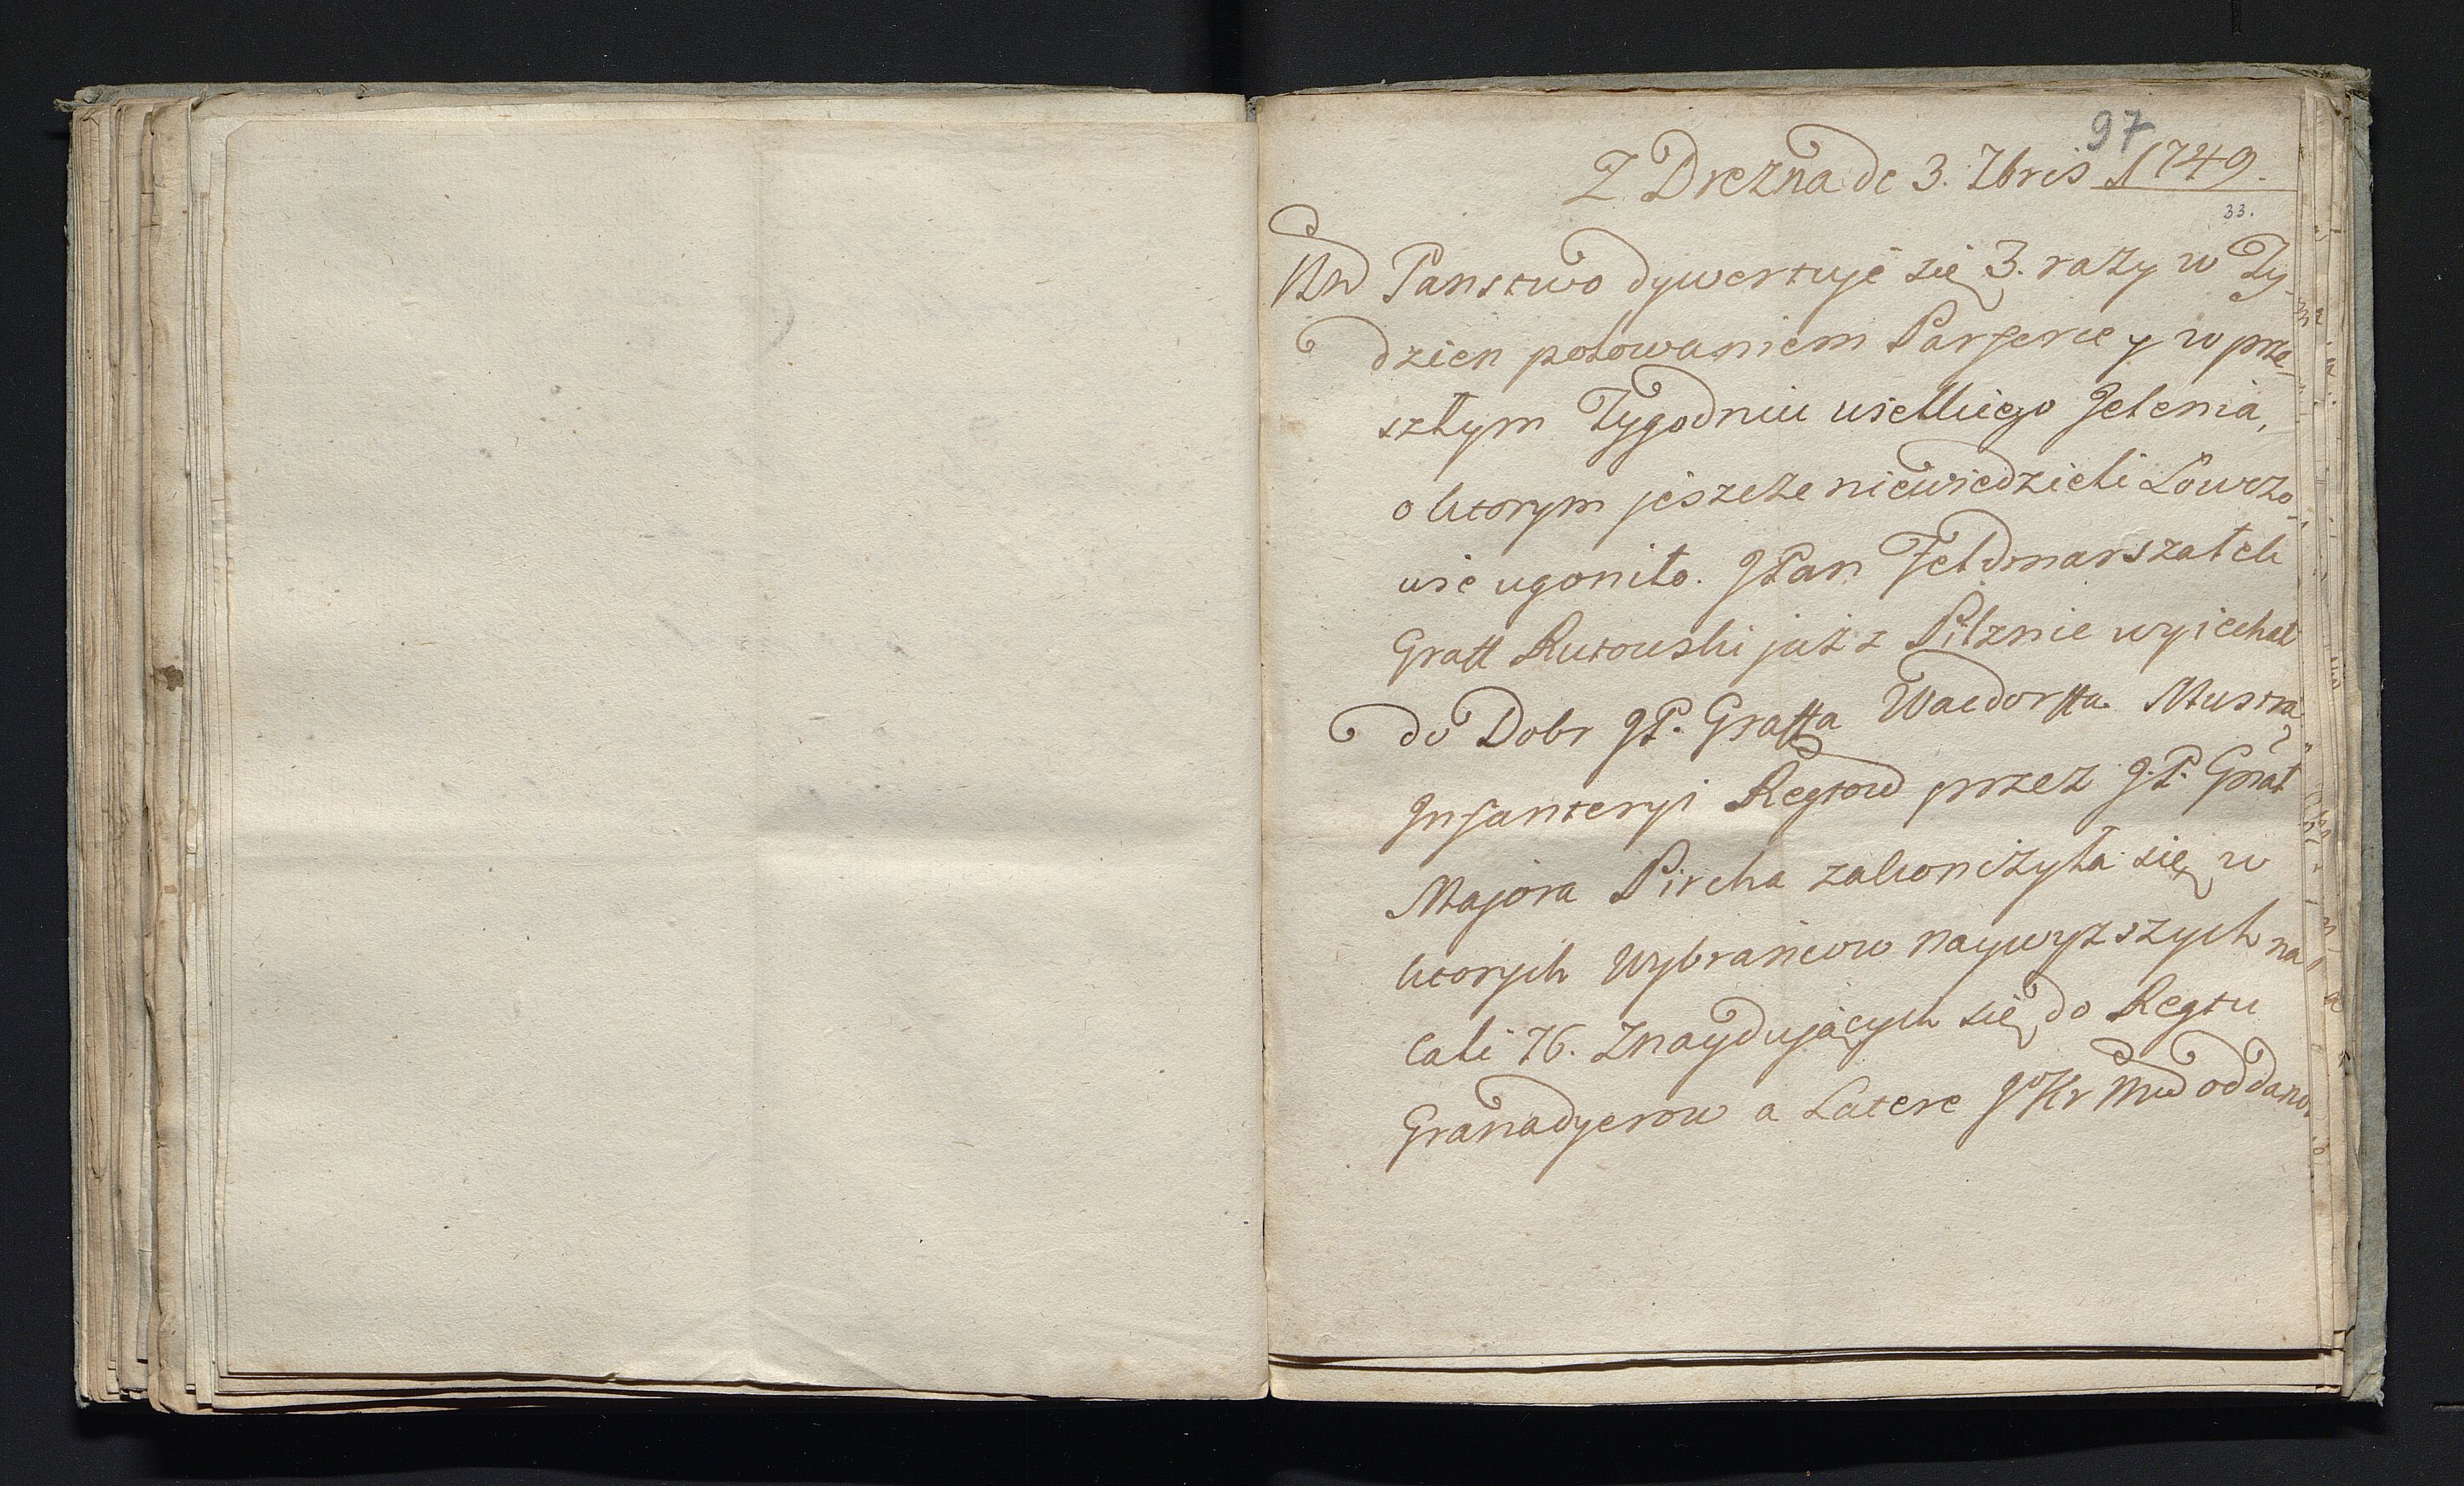 97
Z Drezna de 3. 7bris 1749.
33.
Nro Panstwo dywertuje się 3. razy w Ty-
dzien polowaniem Parforce y w prze-
szłym Tygodniu wielkiego Jelenia,
o ktorym jeszcze niewiedzieli Łowczo-
wie ugonilo. JPan Feldmarszałek
Graff Rutowski już z Pilznie wyiechał
do Dobr JP. Graffa Wacdorffa. Mustra
Infanteryi Regtow przez J.P. Gnał
Majora Pircha zakończyła się w
ktorych Wybrańcow naywyzszych na
Cali 76. Znaydujących się do Regtu
Granadyerow a Latere JoKr Mci oddano.